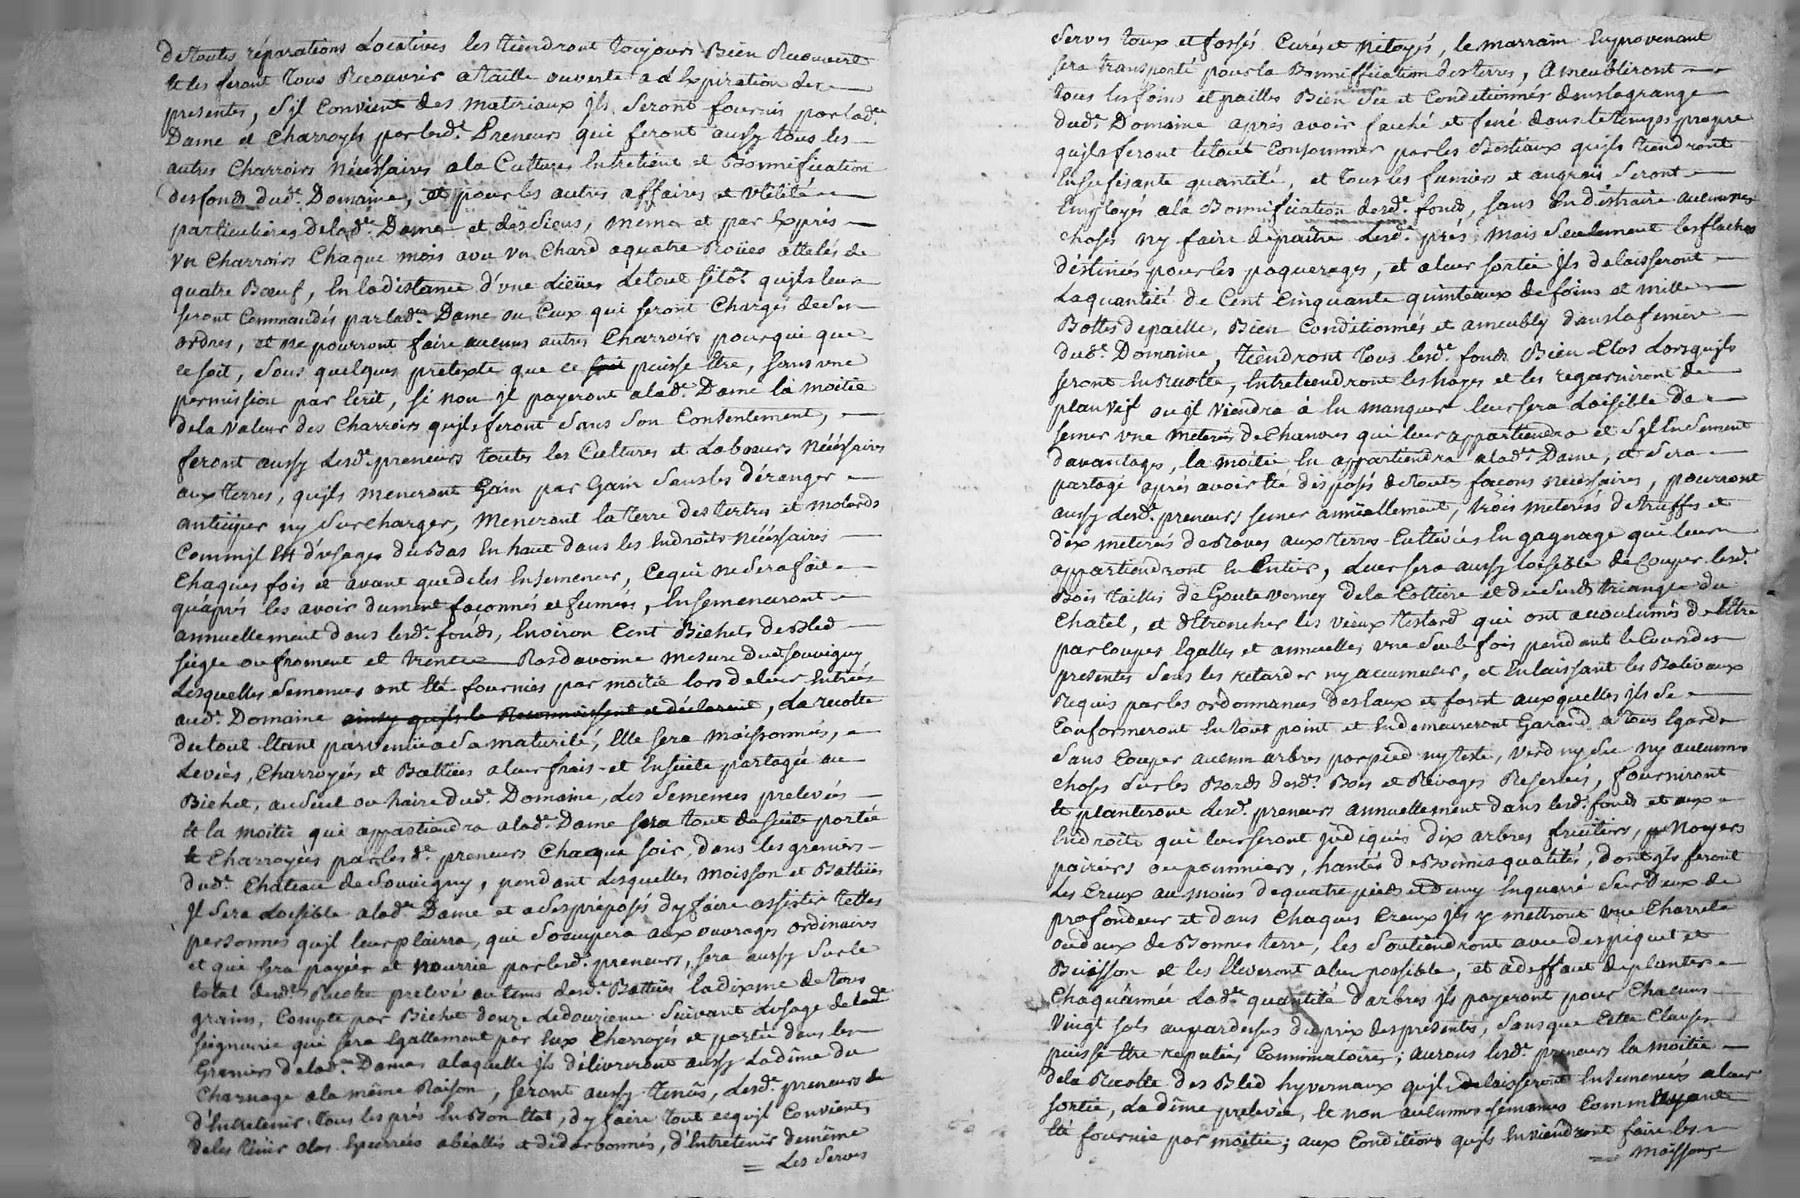 de toutes réparations Locatives les tiendront toujours Bien Recouvert
et les feront tous Recouvrir a taille ouverte a d'Expiration des
presentes, s'il Convient des materiaux ils seront fournis par lad.e
Dame et Charroyés par lesd.s Preneurs qui feront aussy tous les
autres Charroirs Nécéssaires a la Culture Entretiene et Bonnification
des fonds dud.t Domaine, et pour les autres affaires et Utilité
particulieres de lad.e Dame et des siens, meme et par Exprés
un Charroirs Chaque mois avec un Chard a quatre Roües attelés de
quatre Bœuf, En la distance d'une Lieües Le tout sitôt qu'ils leur
seront Commandés par lad.e Dame ou Ceux qui seront Chargés de ses
ordres, et ne pourront faire aucuns autres Charroirs pour qui que
ce soit, sous quelques pretexte que ce soit puisse Etre, sans une
permission par Ecrit, si non il payeront a lad.e Dame la moitié
de la Valeur des Charroirs qu'ils feront sans son Consentement,
feront aussy Lesd.s preneurs toutes les Cultures et Labours Nécéssaires
aux terres, qu'ils meneront Gain par Gain sans les déranger
anticiper ny surcharger, meneront la terre des tertres et molards
Comm'il Est d'usages du Bas En haut dans les Endroits Nécéssaires
Chaques fois et avant que de les Ensemencer, Ce qui ne sera fait
qu'aprés les avoir dument façonnés et fumés, Ensemenceront
annuellement dans lesd.s fonds, Environ Cent Bichets de Bled
seigle ou froment et trente Ras d'avoine mesure dud. Souvigny
Lesquelles semences ont Eté fournies par moitié lors de leur Entrée
aud.t Domaine ainsy qu'ils le Reconnoissent et déclarent, La recolte
du tout Etant parvenüe a sa maturité, Elle sera moissonnés,
Levées, Charroyés et Battües a leur frais et Ensuite partagée au
Bichet, au seuil ou haire dud.t Domaine, Les semences prelevées
et la moitié qui appartiendra a lad.e Dame sera tout de suite portée
et Charroyées par lesd.s preneurs Chaque soir, dans les greniers
dud.t Château de Souvigny, pendant Lesquelles moisson et Battües
Il sera Loisible a lad.e Dame et a ses préposés d'y faire assister telles
personnes qu'il leur plairra, qui s'ocupera aux ouvrages ordinaires
et qui sera payée et Nourrie par lesd.s preneurs, sera aussy sur le
total desd.s Recolte prelevé au tems desd.s Battües la dixme de tous
grains, Compté par Bichet d'onze Le douzieme suivant L'usage de lad.e
seigneurie qui sera Egallement par Eux Charroyés et portée dans les
Greniers de lad.e Dames a laquelle ils délivreront aussy La dîme du
Charnage a la même Raison, seront aussy tenûs, Lesd.s preneurs de
d'Entretenir tous les prés En Bon Etat, d'y faire tout ce qu'il Convient
de les tenir clos Epierrés et , d'Entretenir de même
Les Serves
Serves toux et fossés Curés et Nétoyés, le marrain En provenant
sera transporté pour la Bonniffication des terres, Ameubliront
tous les foins et pailles Bien Sec et Conditionnés dans la grange
dud.t Domaine aprés avoir fauché et fené dans le temps propre
qu'ils feront le tout Consommer par les Bestiaux qu'ils tiendront
En sufisante quantité, et tous les fumiers et angrais seront
Employés a la Bonnification desd.s fonds, sans En distraire aucunnes
choses ny faire depaître Lesd.s prés, mais seulement les flaches
déstinées pour les paquerages, et a leur sortie ils delaisseront
La quantité de Cent Cinquante quinteaux de foins et mille
Bottes de paille, Bien Conditionnés et ameubly dans la feniere
dud.t Domaine, tiendront tous lesd.s fonds Bien Clos Lorsqu'ils
seront En Recolte, Entretiendront les hayes et les regarniront de
plan vif ou il viendra à En manquer leur sera Loisible de
semer une meterée de Chanvres qui leur appartiendra et s'il En sement
davantages, la moitié En appartiendra a lad.e Dame, et sera
partagé aprés avoir Eté disposés de toutes façons nécéssaires, pourront
aussy Lesd.s preneurs semer annüellement, trois meterées de truffes et
dix meterées de Raves aux terres Cultivées En gagnage qui leur
appartiendront En Entier, Leur sera aussy loisible de Couper lesd.s
Bois taillis de Goute Verney de la Cottiere et du triangle du
Chatel, et d'Etroncher les vieux testard qui ont accoutumés de l'Etre
par Coupes Egalles et annuelles une seule fois pendant le Cours des
presentes sans les retarder ny accumuler, et En laissant les Balivaux
Requis par les ordonnances des Eaux et foret auxquelles ils se
Conformeront En tout point et En demeureront Garand a tous Egards
sans Couper aucun arbres par pied ny teste, verd ny sec ny aucunnes
choses sur les Bords desd.s Bois et Rivages Reservés, fourniront
et planteront Lesd.s preneurs annuellement dans lesd.s fonds et aux
Endroits qui leur seront indiqués dix arbres fruitiers, Noyers
poiriers ou pommiers, hantés de Bonnes qualités, dont ils feront
Les Creux au moins de quatre pieds et demy En quarré sur Deux de
profondeur et dans Chaques Creux ils y mettront une Charrete
ou deux de Bonnes terre, les soutiendront avec des piquet et
Buisson et les Eleveront a leur possible, et a deffaut de planter
Chaqu'année Lad.e quantité d'arbres ils payeront pour Chacuns
Vingt sols au par dessus du prix des presentes, sans que Cette Clause
puisse Etre reputées Comminatoires; aurons lesd.s preneurs la moitié
de la Recolte des Bled hyvernaux qu'ils delaisseront Ensemencés a leur
sortie, La dîme prelevée, Et non aucunnes semences Comm'ayant
Eté fournie par moitié; aux Conditions qu'ils En viendront faire les
moissons